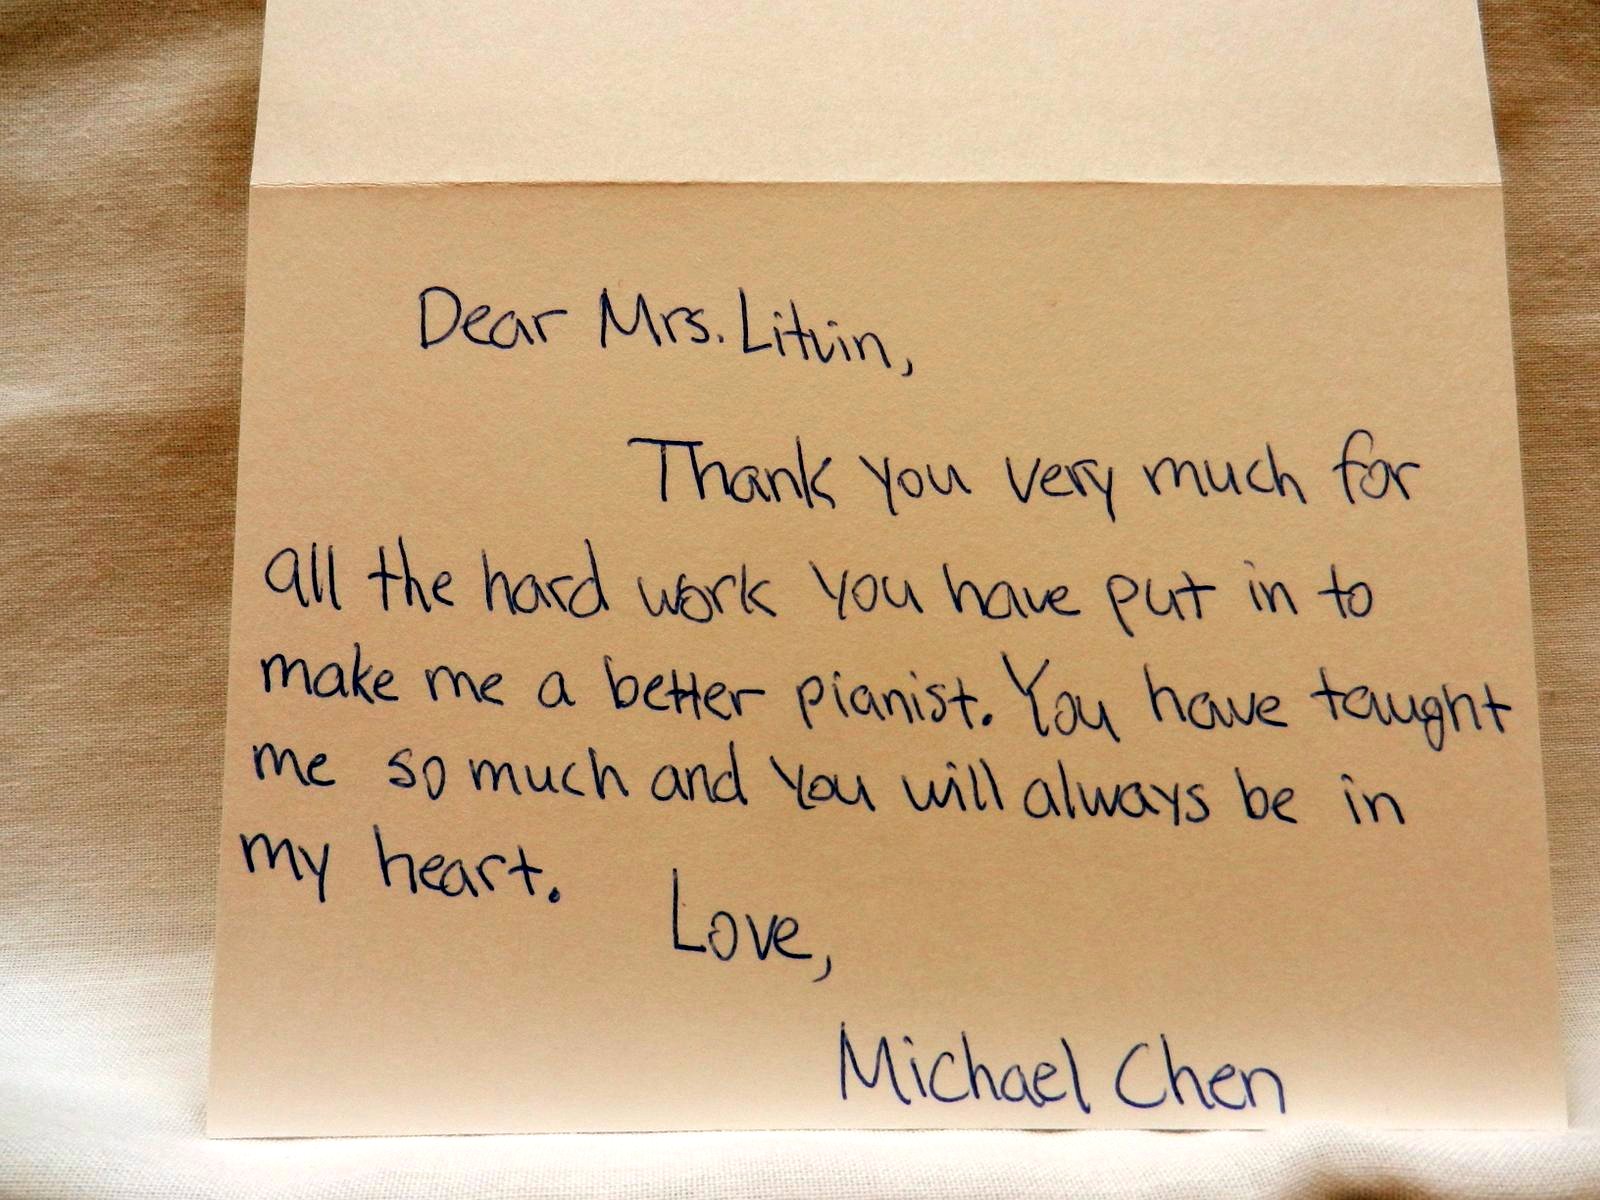 Dear Mrs. Litvin,
Thank you very much for
all the hard work you have put in to
make me a better pianist. You have taught
me so much and you will always be in
my heart.
Love,
Michael Chen